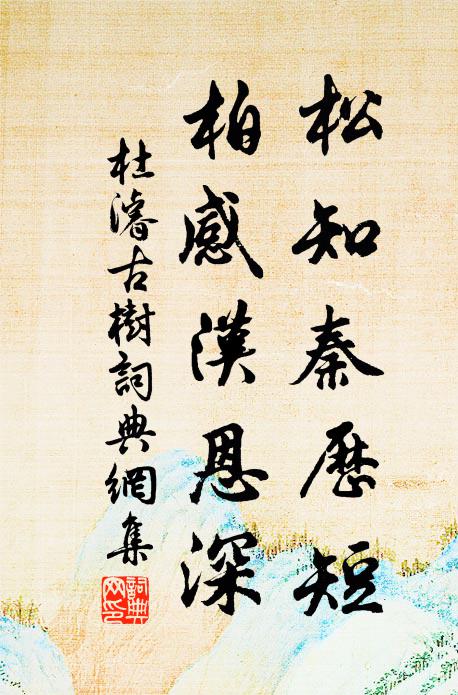 松知秦歷短
柏感漢恩深
杜濬古樹詞典網集
詞典